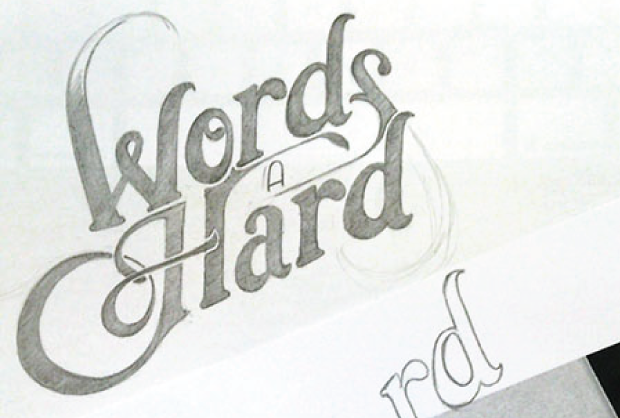 Words
A
Hard
rd